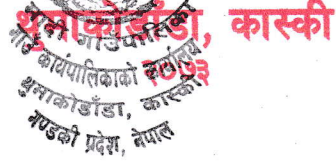 थुमाकोडाँडा, कास्की
२०७३
गाउँपालिका
गाउँ कार्यपालिकाको कार्यालय
थुमाकोडाँडा, कास्की
गण्डकी प्रदेश, नेपाल